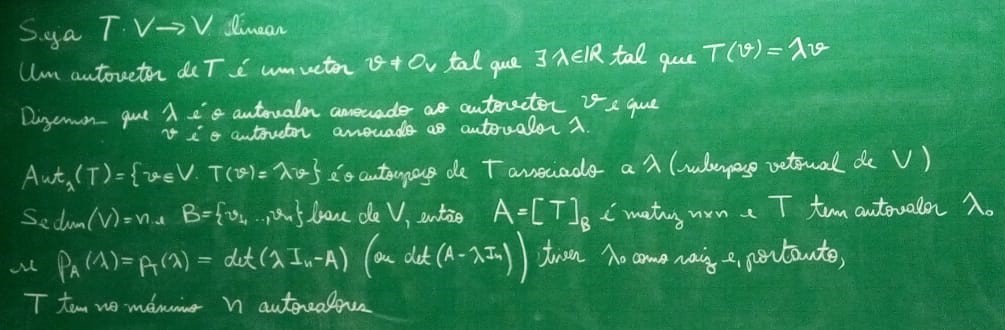 Seja T: V→V linear
Um autovetor de T é um vetor v ≠ 0ᵥ tal que ∃ λ∈ℝ tal que T(v) = λv
Dizemos que λ é o autovalor associado ao autovetor v e que
v é o autovetor associado ao autovalor λ.
Autλ(T) = {v∈V: T(v) = λv} é o autoespaço de T associado a λ (subespaço vetorial de V)
Se dim(V) = n e B = {v₁, ..., vₙ} base de V, então A = [T]_B é matriz n×n e T tem autovalor λ₀
se p_A(λ) = p_T(λ) = det(λIₙ-A) (ou det(A-λIₙ)) tiver λ₀ como raiz e, portanto,
T tem no máximo n autovalores